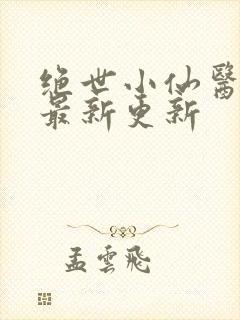 绝世小仙醫
最新更新
孟雲飛